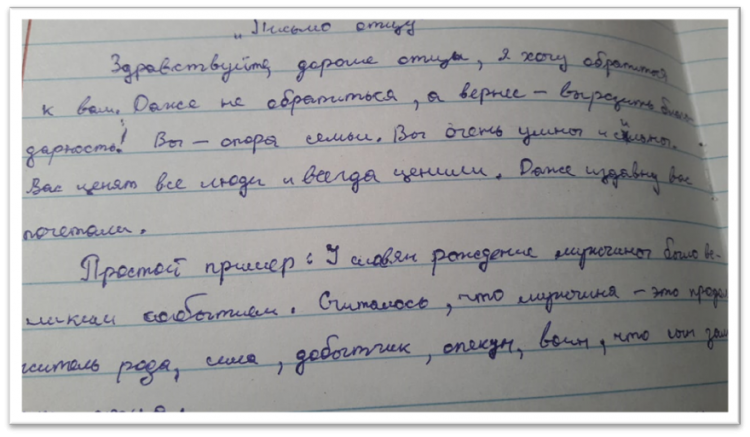 „Письмо отцу
Здравствуйте, дорогие отцы, я хочу обратиться
к вам. Даже не обратиться, а вернее – выразить благо-
дарность! Вы – опора семьи. Вы очень умны и сильны.
Вас ценят все люди и всегда ценили. Даже издавну вас
почетали.
Простой пример: У славян рождение мужчины было ве-
ликим событием. Считалось, что мужчина – это продол
житель рода, сила, добытчик, опекун, воин, что сын